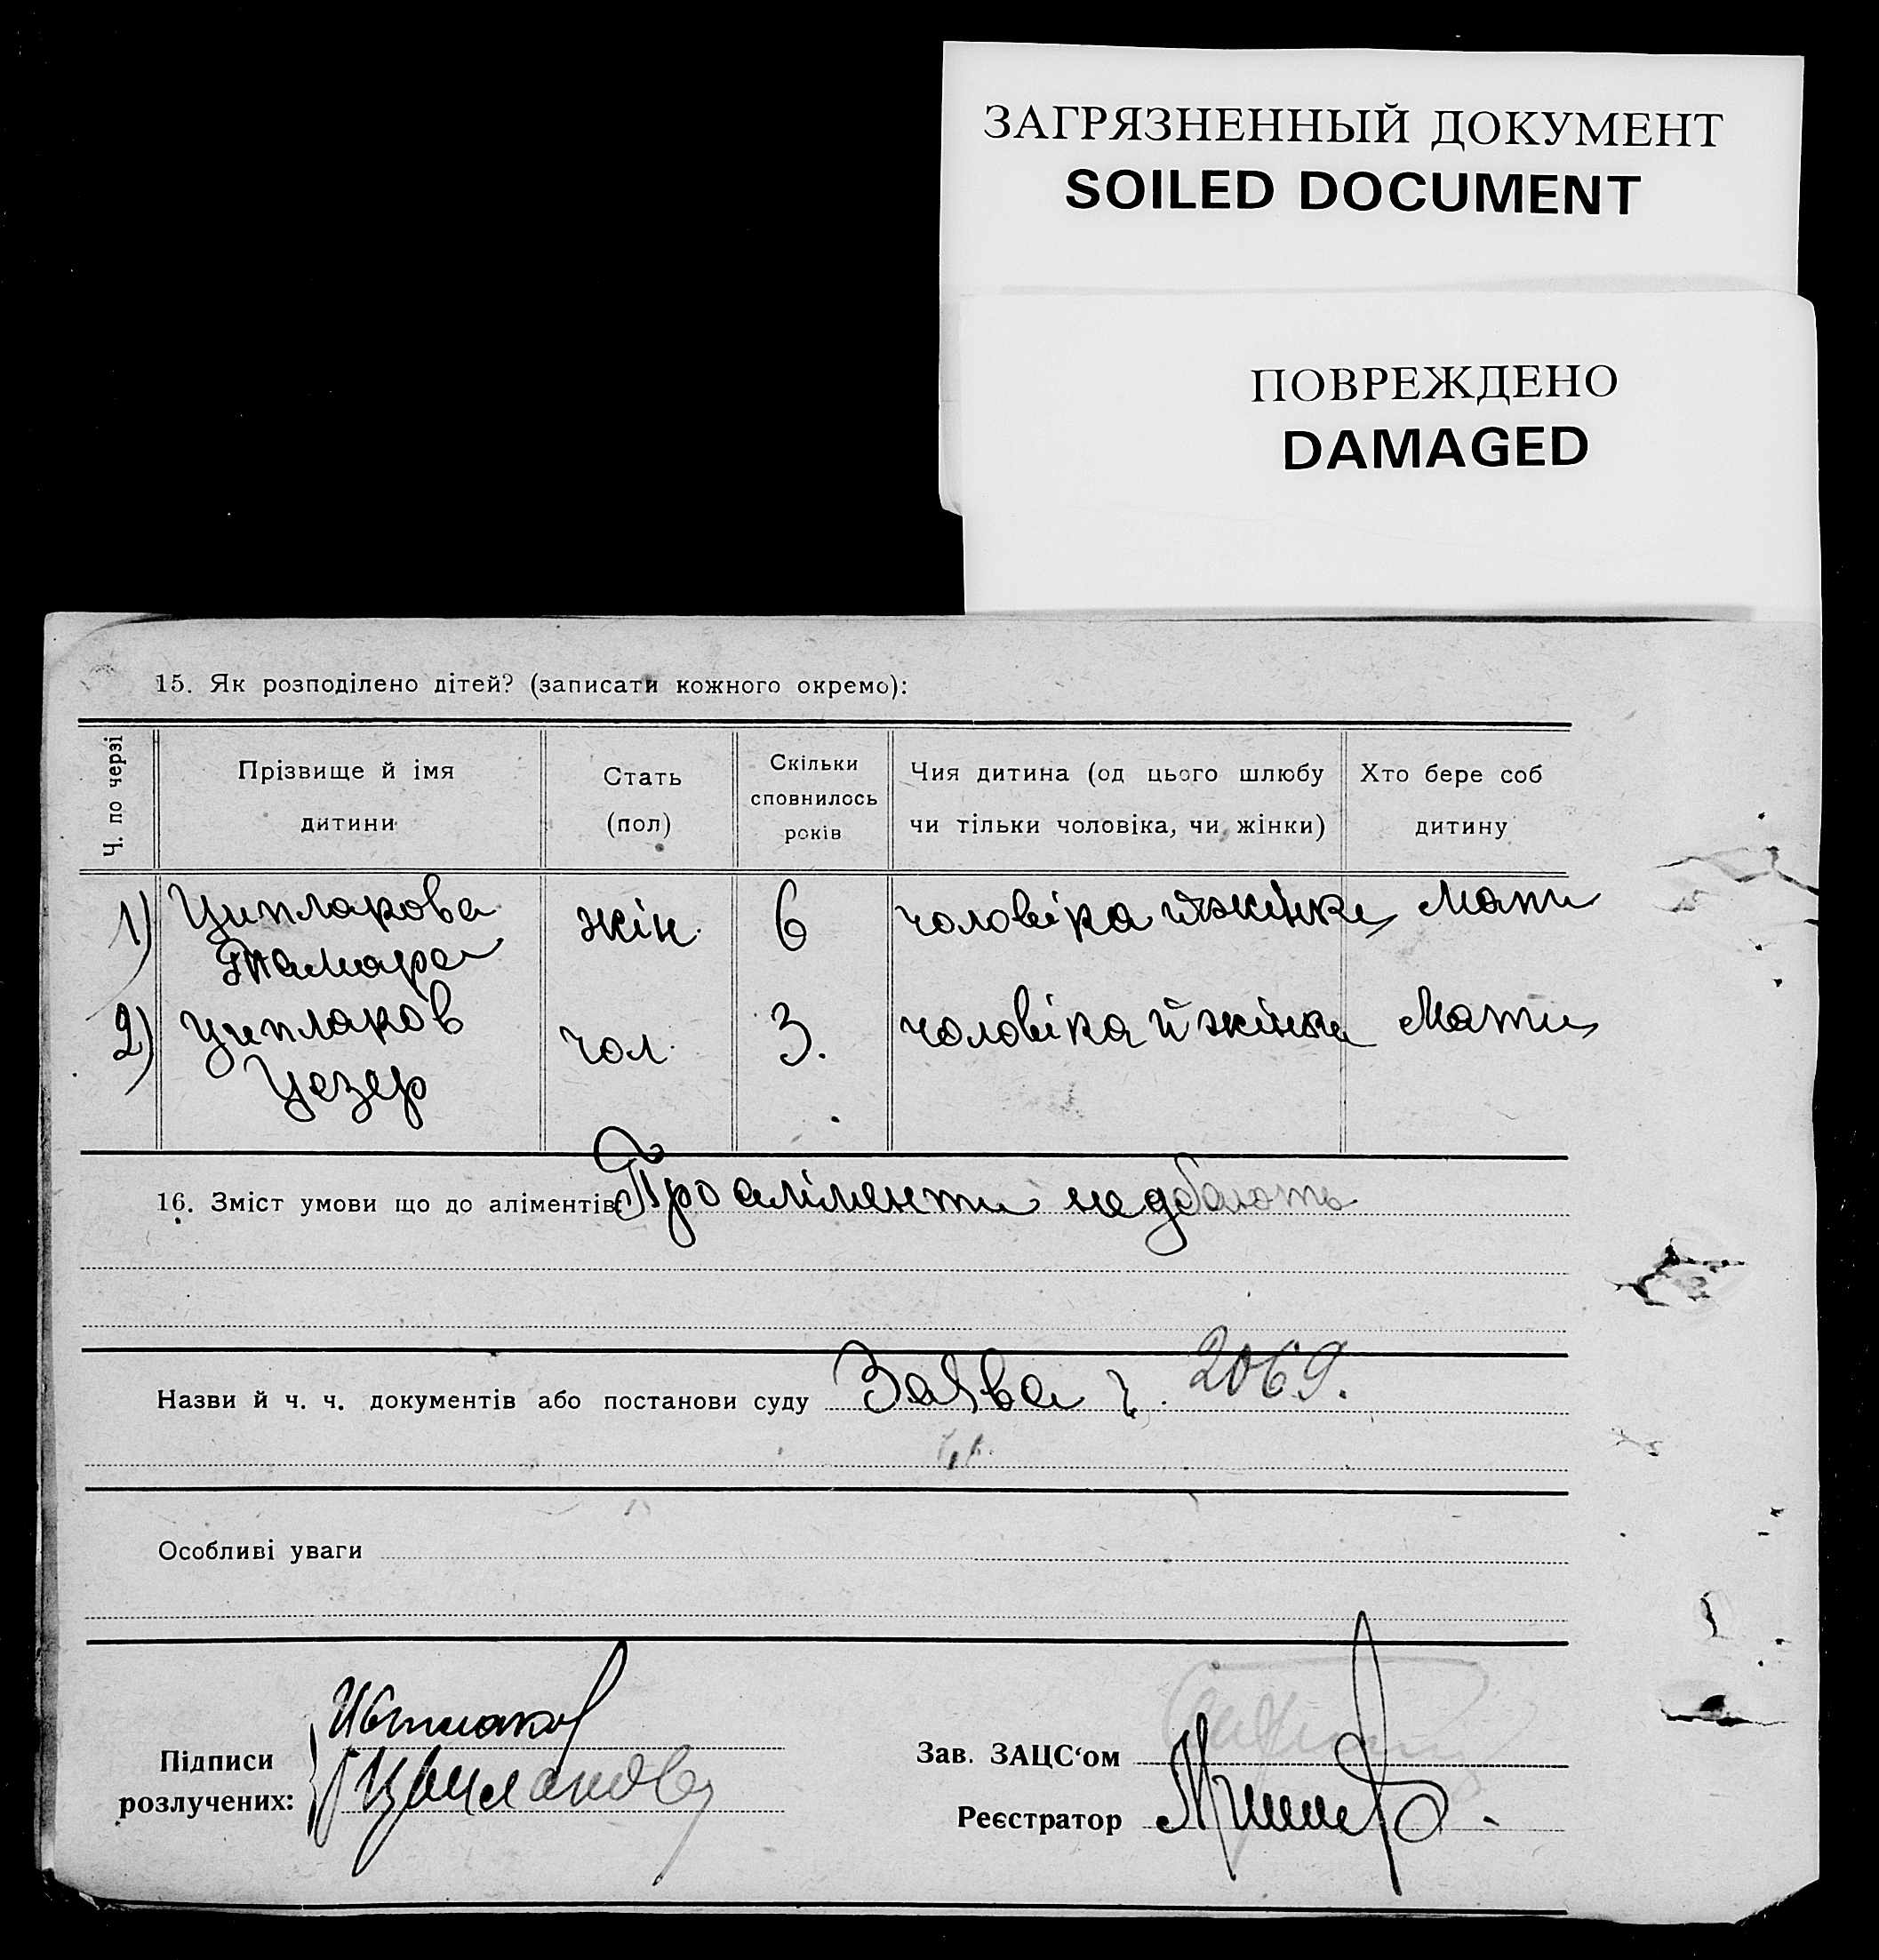 ЗАГРЯЗНЕННЫЙ ДОКУМЕНТ
SOILED DOCUMENT
ПОВРЕЖДЕНО
DAMAGED
15. Як розподілено дітей? (записати кожного окремо):
Ч. по черзі
Прізвище й імя дитини
Стать (пол)
Скільки сповнилось років
Чия дитина (од цього шлюбу чи тільки чоловіка, чи жінки)
Хто бере соб дитину
1) Циплакова Тамара жін. 6 чоловіка й жінки Мати
2) Циплаков Цезер чол. 3. чоловіка й жінки Мати
16. Зміст умови що до аліментів: Про аліменти не дбають
Назви й ч. ч. документів або постанови суду Заява ч. 2069.
Особливі уваги
Підписи розлучених:
Зав. ЗАЦС‘ом
Реєстратор